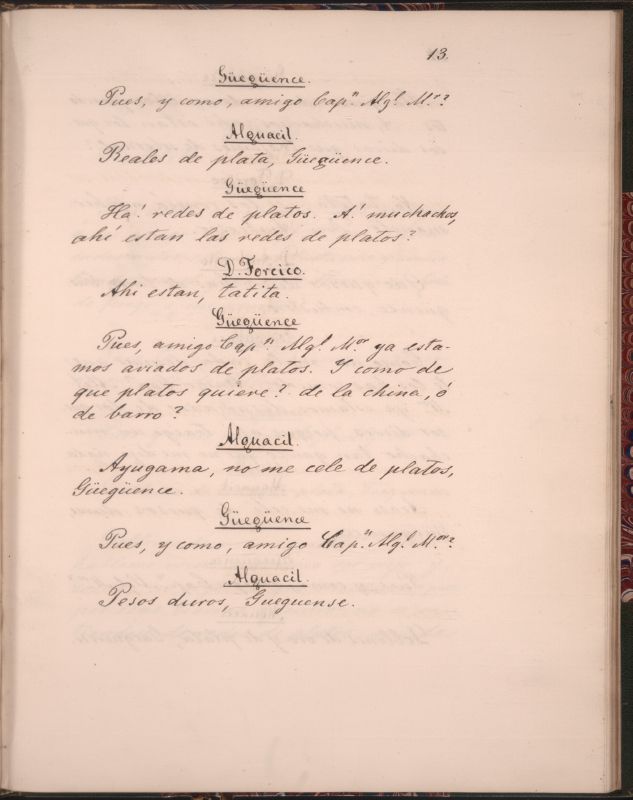 13.
Güegüence.
Pues, y como, amigo Capⁿ. Algˡ. M.ᵒʳ?
Alguacil.
Reales de plata, Güegüence.
Güegüence
Ha! redes de platos. A! muchachos,
ahí estan las redes de platos?
D. Forcico.
Ahi estan, tatita.
Güegüence
Pues, amigo Capⁿ. Algˡ. M.ᵒʳ ya esta-
mos aviados de platos. Y como de
que platos quiere? de la china, ó
de barro?
Alguacil.
Ayugama, no me cele de platos,
Güegüence.
Güegüence
Pues, y como, amigo Capⁿ. Algˡ. M.ᵒʳ?
Alguacil.
Pesos duros, Gueguense.